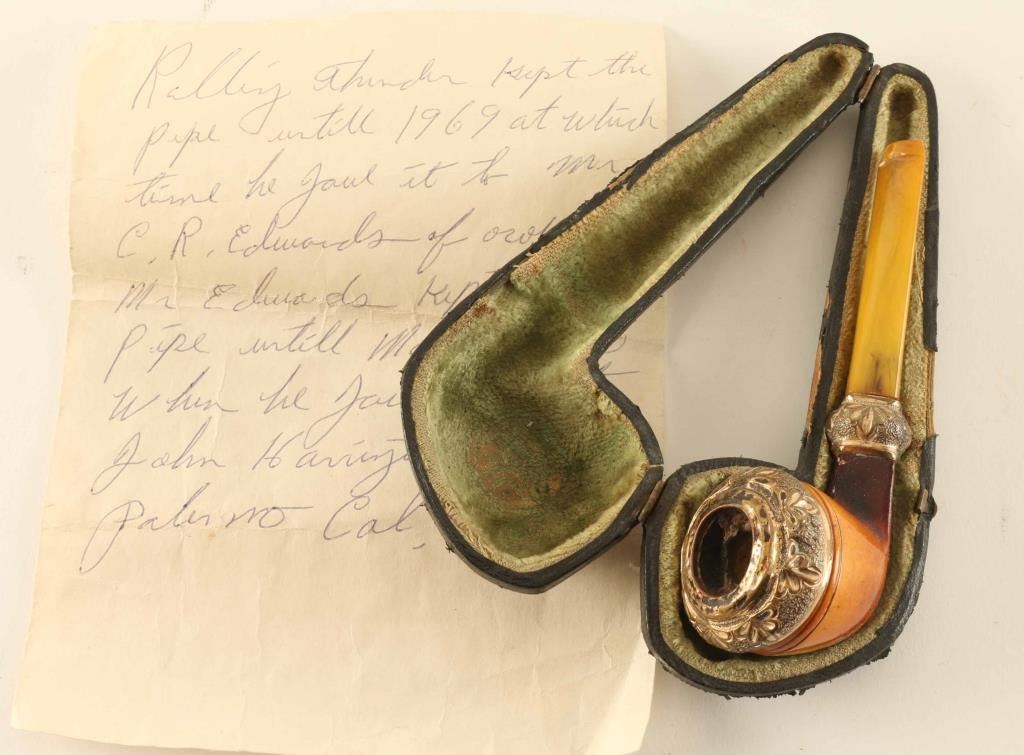 Rolling thunder kept the
pipe untill 1969 at which
time he gave it to Mr
C. R. Edwards of
Mr Edwards kept
pipe untill
When he
John
Palermo Cal.